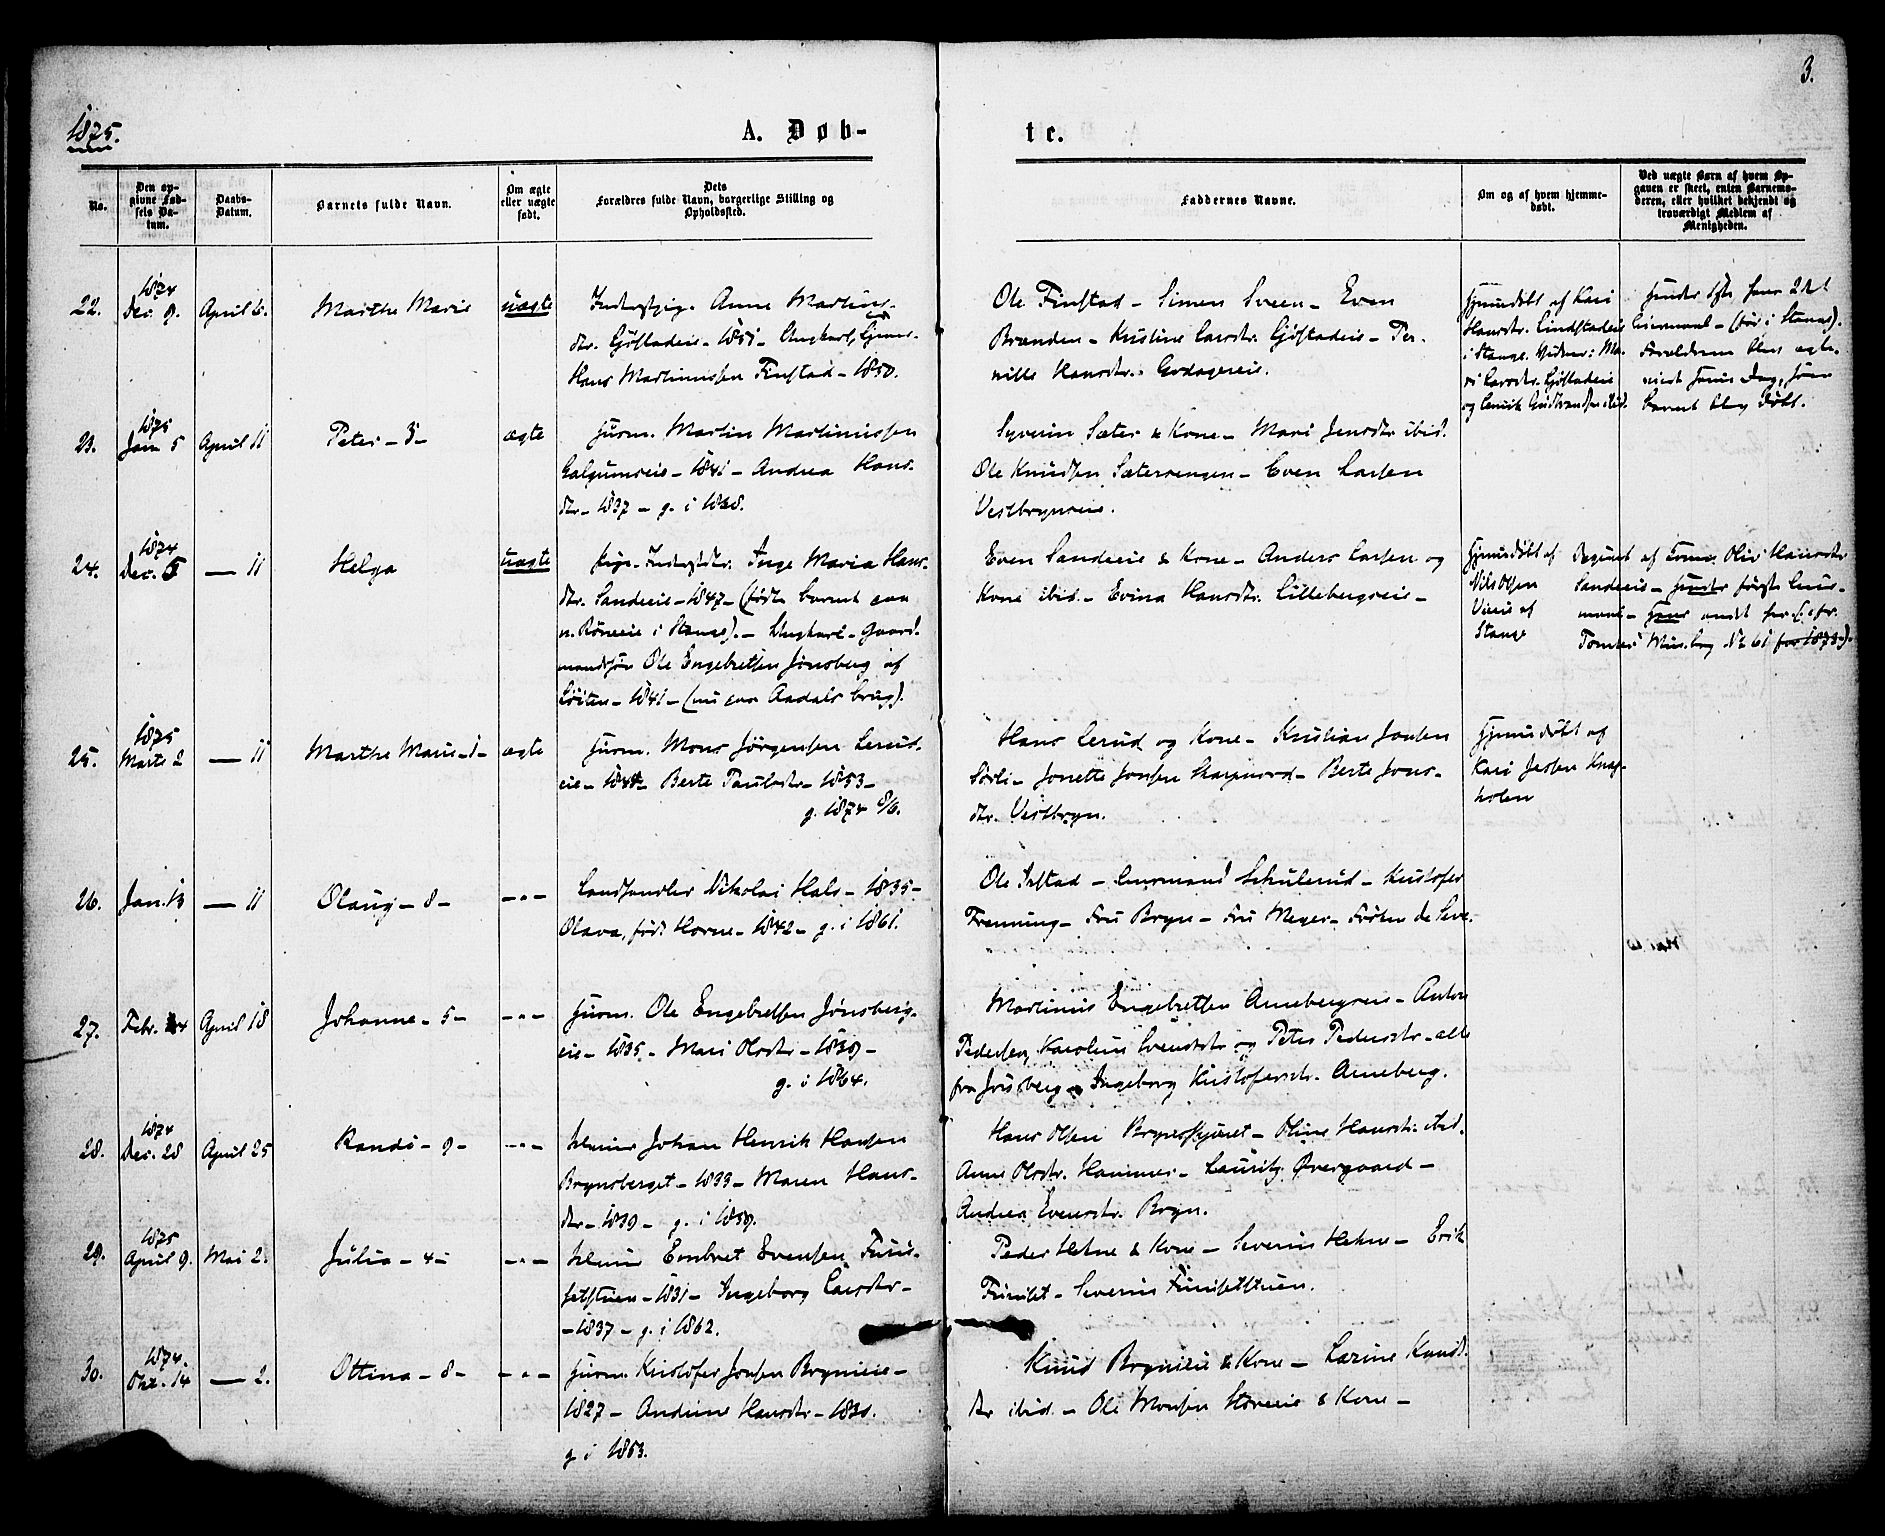 3.
1875.
A. Døb-
te.
No.
Den op-
givne Fød-
sels Da-
tum.
Daabs-
Datum.
Barnets fulde Navn.
Om ægte
eller uægte
født.
Dets
Forældres fulde Navn, borgerlige Stilling og
Opholdssted.
Faddernes Navne.
Om og af hvem hjemme-
døbt.
Ved uægte Børn af hvem Op-
gaven er skeet, enten Barnemo-
deren, eller hvilket bekjendt og
troværdigt Medlem af
Menigheden.
22.
1874
Dec. 9.
April 6.
Marthe Marie
uægte
Anne Martins-
dtr. Gjøstadeie - 1851 - Ungkarl
Hans Martinussen Finstad - 1850.
Ole Finstad - Simen Sveen - Even
Brænden - Kristine Larsdtr. Gjøstadeie - Per-
nille Hansdtr.
Hjemdøbt af Kari
Hansdtr. Lindstadeie
i Stange. Vidner: Ma-
ri Larsdtr. Gjøstadeie
og
(før i Stange).
Forældrene blev ægte-
viet samme Dag, som
Barnet blev døbt.
23.
1875
Jan 5
April 11
Peter - 3 -
ægte
Huusm. Martin Martinussen
Galgumseie - 1841 - Andrea Hans-
dtr. - 1837 - g. i 1868.
Syverin Sæter & Kone - Mari Jensdtr. ibid.
Ole Knudsen Sæterengen - Even Larsen
Vestbrynseie.
24.
1874
Dec. 5
- 11
Helga
uægte
Inge Maria Hans-
dtr. Sandeeie - 1847 - (født Barnet paa
i Stange). - Ungkarl - Gaard-
mandssøn Ole Engebretsen Jønsberg af
Løiten - 1841 - (nu paa Aadals Brug).
Even Sandeeie & Kone - Anders Larsen og
Kone ibid. - Evina Hansdtr. Lillebergseie -
Hjemdøbt af
Nils Olsen
Stange
Begjært af Hansdtr
Sandeeie - første
No 61 for 1873).
25.
1875
Marts 2
- 11
Marthe Marie - 1 -
ægte
Huusm. Mons Jørgensen Lerud-
eie - 1848 - Berte Paulsdtr. - 1853 -
g. 1874 8/6.
Hans Lerud og Kone - Kristian Jonsen
Sørli - Jonette Jonsen - Berte Jons-
dtr. Vestbryn.
Hjemdøbt af
Kari Jensen Knap-
holen
26.
Jan. 13
- 11
Olaug - 8 -
- " -
Landhandler Nikolai Hals - 1835 -
Olava, født Horne - 1842 - g. i 1861.
Ole - Lensmand Schulerud - Kristofer
Frenning - Fru Bryn - Fru Meyer - Frøken de Seve.
27.
Febr. 4
April 18
Johanne - 5 -
- " -
Huusm. Ole Engebretsen Jønsberg-
eie - 1835 - Mari Olsdtr - 1839 -
g. i 1864.
Martinus Engebretsen Annebergseie - Anton
Pedersen, Karoline Svendsdtr og Petra Pedersdtr - alle
fra Jønsberg - Ingeborg Kristofersdtr. Anneberg.
28.
1874
Dec. 28
April 25
Randi - 9 -
- " -
Johan Henrik Hansen
Brynsberget - 1833 - Maren Hans-
dtr - 1839 - g. i 1859.
Hans Olsen - Oline Hansdtr. ibid.
Anne Olsdtr. Hammer - Lauritz Øvergaard -
Andrea Evensdtr. Bryn.
29.
1875
April 9.
Mai 2.
Julia - 4 -
- " -
Embret Evensen Furu-
setstuen - 1831 - Ingeborg Larsdtr -
- 1837 - g. i 1862.
Peder Hekne & Kone - Severin Hekne - Erik
Furuset - Severin Furusetstuen.
30.
1874
Okt. 14
- 2.
Ottina - 8 -
- " -
Huusm. Kristofer Jonsen Brynseie -
1827 - Andrine Hansdtr - 1830.
g i 1853.
Knud Brynseie & Kone - Larine Knuds-
dtr ibid. - Ole Monsen & Kone -